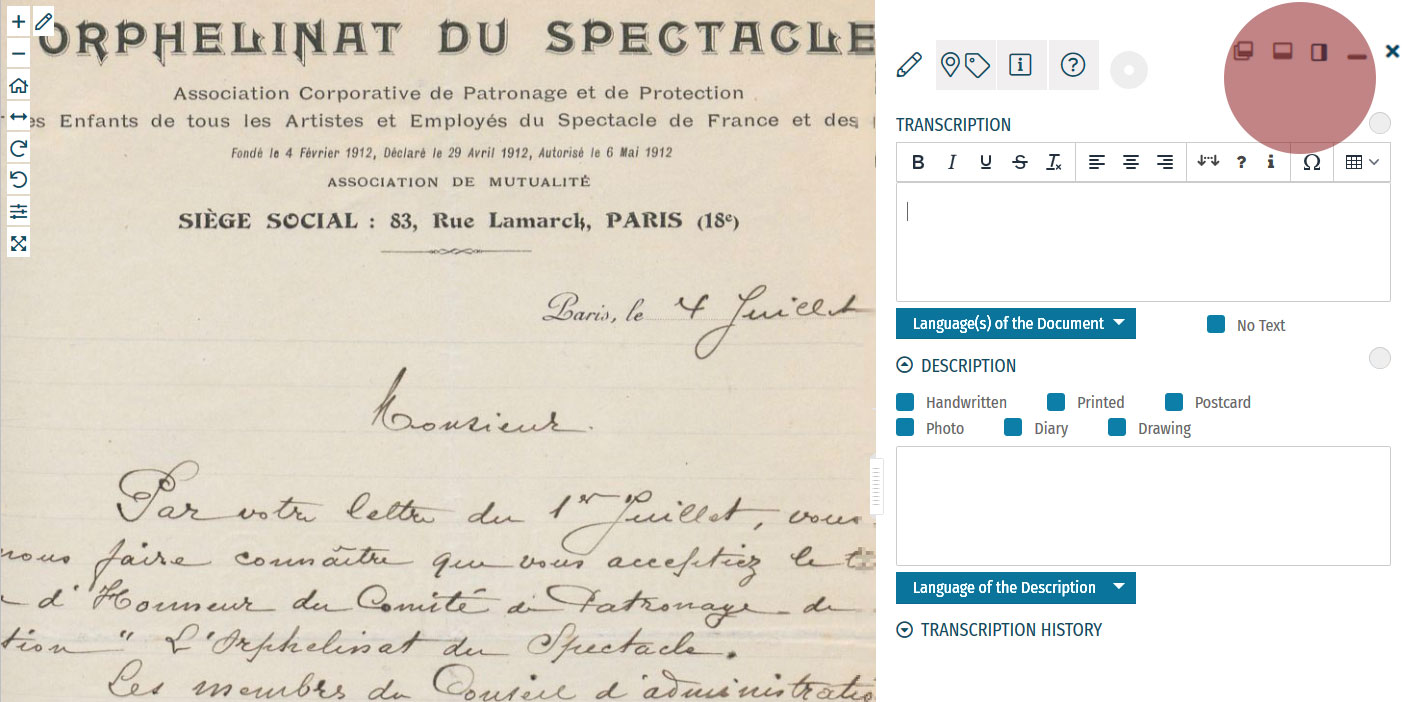 ORPHELINAT DU SPECTACLE
Association Corporative de Patronage et de Protection
es Enfants de tous les Artistes et Employés du Spectacle de France et des
Fondé le 4 Février 1912, Déclaré le 29 Avril 1912, Autorisé le 6 Mai 1912
ASSOCIATION DE MUTUALITÉ
SIÈGE SOCIAL : 83, Rue Lamarck, PARIS (18e)
Paris, le 4 Juillet
Monsieur.
Par votre lettre du 1er Juillet, vous
nous faire connaître que vous acceptiez le
d'Honneur du Comité de Patronage de
tion " L'Orphelinat du Spectacle.
Les membres du Conseil d'administratio
TRANSCRIPTION
B I U S Tx ? i Ω
Language(s) of the Document
No Text
DESCRIPTION
Handwritten Printed Postcard
Photo Diary Drawing
Language of the Description
TRANSCRIPTION HISTORY